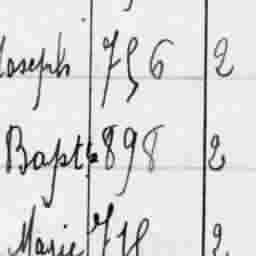 Joseph 756 2
Bapte 898 2
Marie 718 2